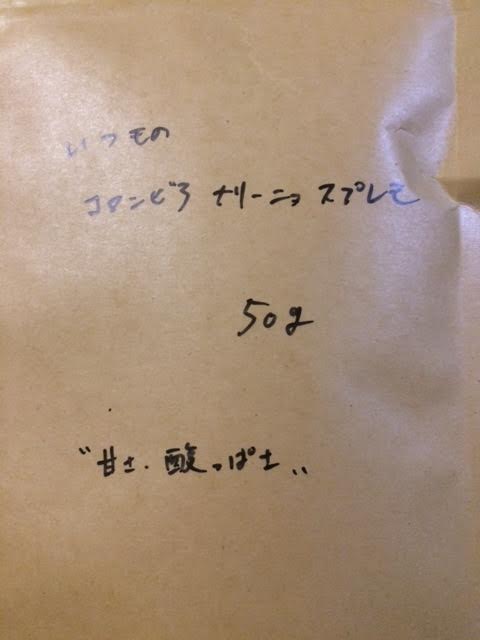 いつもの
コロンビア ナリーニョ スプレモ
50g
〝甘さ・酸っぱさ〟